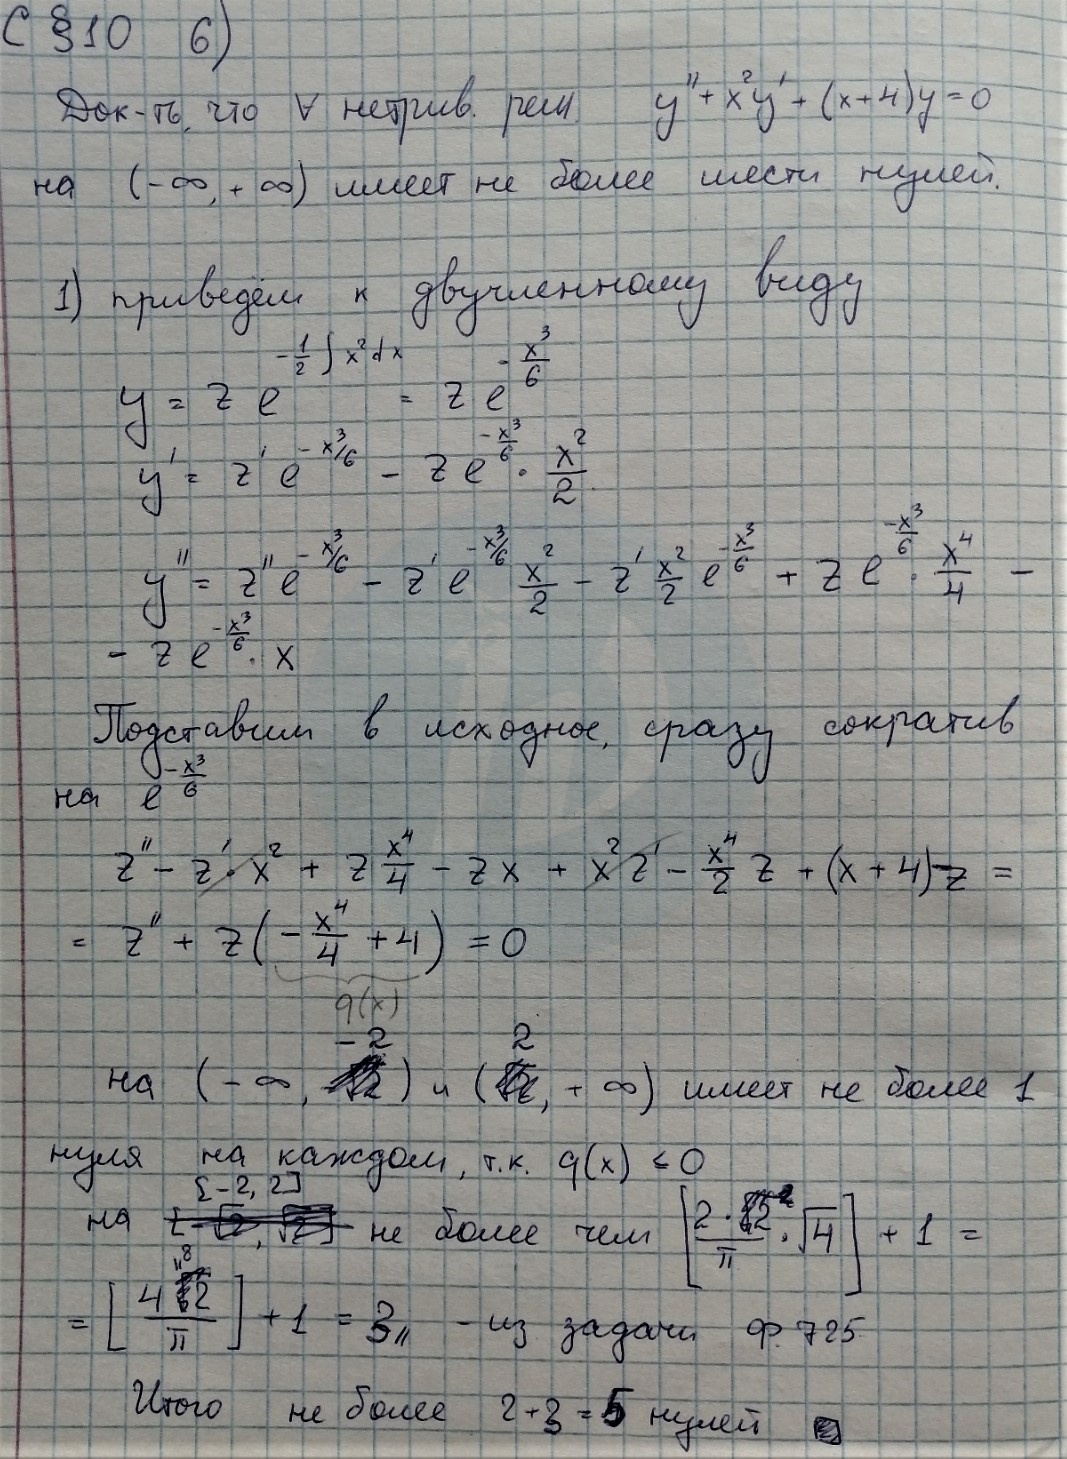 С §10 б)
Док-ть, что ∀ нетрив. реш. y'' + x²y' + (x+4)y = 0
на (-∞, +∞) имеет не более шести нулей.
1) приведём к двучленному виду
y = z e^{-\frac{1}{2}∫x²dx} = z e^{-\frac{x³}{6}}
y' = z' e^{-x³/6} - z e^{-\frac{x³}{6}} · \frac{x²}{2}
y'' = z'' e^{-x³/6} - z' e^{-x³/6} \frac{x²}{2} - z' \frac{x²}{2} e^{-\frac{x³}{6}} + z e^{-\frac{x³}{6}} · \frac{x⁴}{4} -
- z e^{-\frac{x³}{6}} · x
Подставим в исходное, сразу сократив
на e^{-\frac{x³}{6}}
z'' - z'·x² + z \frac{x⁴}{4} - zx + x²z' - \frac{x⁴}{2} z + (x+4)z =
= z'' + z(-\frac{x⁴}{4} + 4) = 0
q(x)
на (-∞, -2) и (2, +∞) имеет не более 1
нуля на каждом, т.к. q(x) ≤ 0
на [-2, 2] не более чем [\frac{2·2}{π} · √4] + 1 =
= [\frac{8}{π}] + 1 = 3 - из задачи Ф. 725
Итого не более 2+3=5 нулей